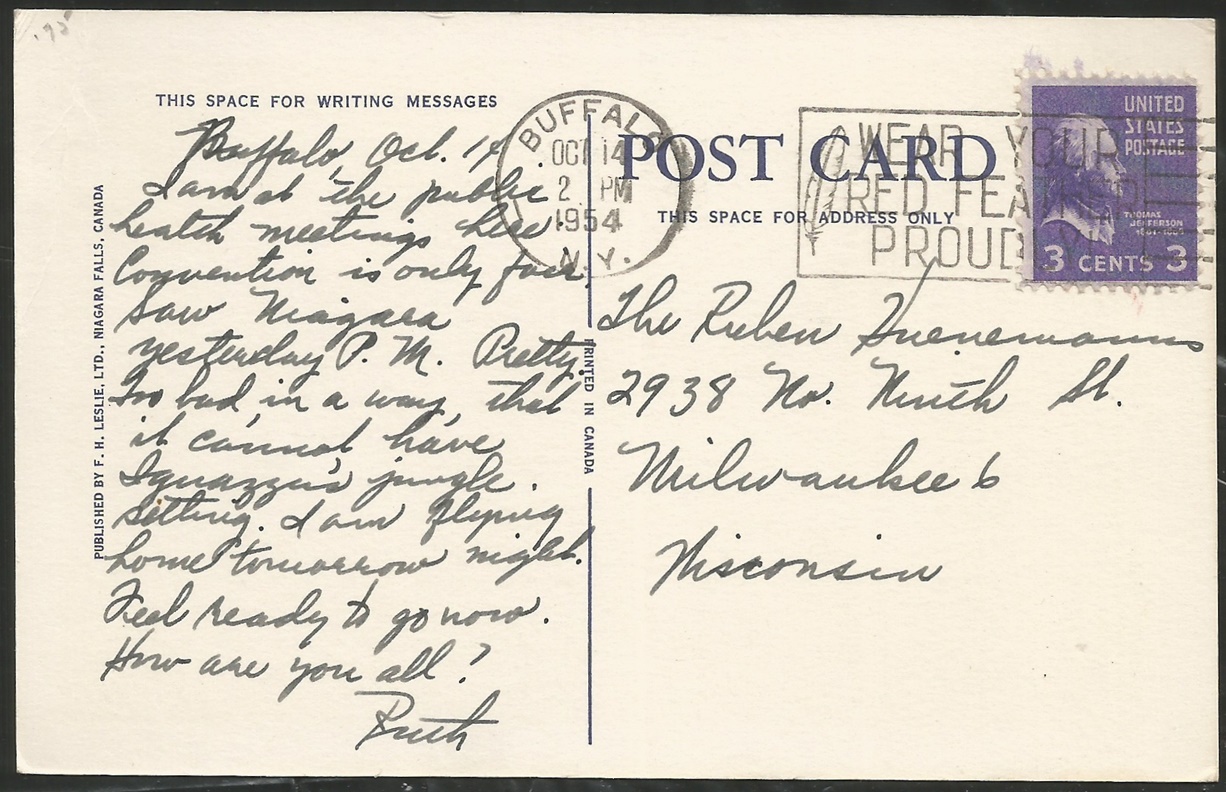 .75
THIS SPACE FOR WRITING MESSAGES
Buffalo, Oct. 14
I am at the public
health meetings here
Convention is only fair.
Saw Niagara
yesterday P. M. Pretty.
Too bad, in a way, that
it cannot have
Iguazzu's jungle
setting. I am flying
home tomorrow night.
Feel ready to go now.
How are you all?
Ruth
PUBLISHED BY F. H. LESLIE, LTD., NIAGARA FALLS, CANADA
PRINTED IN CANADA
BUFFALO
OCT 14
2 PM
1954
N. Y.
POST CARD
THIS SPACE FOR ADDRESS ONLY
WEAR YOUR
RED FEATHER
PROUDLY
UNITED
STATES
POSTAGE
THOMAS
JEFFERSON
3 CENTS 3
The Ruben Huenemanns
2938 No. Ninth St.
Milwaukee 6
Wisconsin